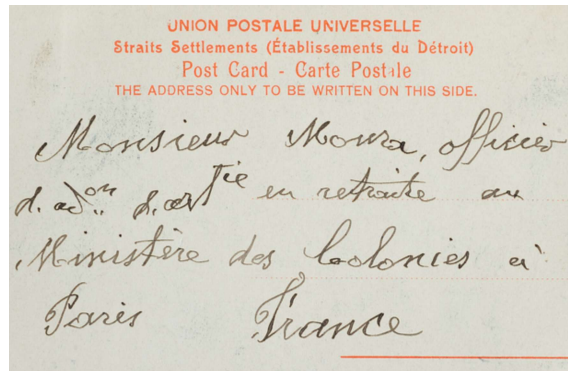 UNION POSTALE UNIVERSELLE
Straits Settlements (Établissements du Détroit)
Post Card - Carte Postale
THE ADDRESS ONLY TO BE WRITTEN ON THIS SIDE.
Monsieur Moura, officier
d. adon d. artie en retraite au
Ministère des Colonies à
Paris France